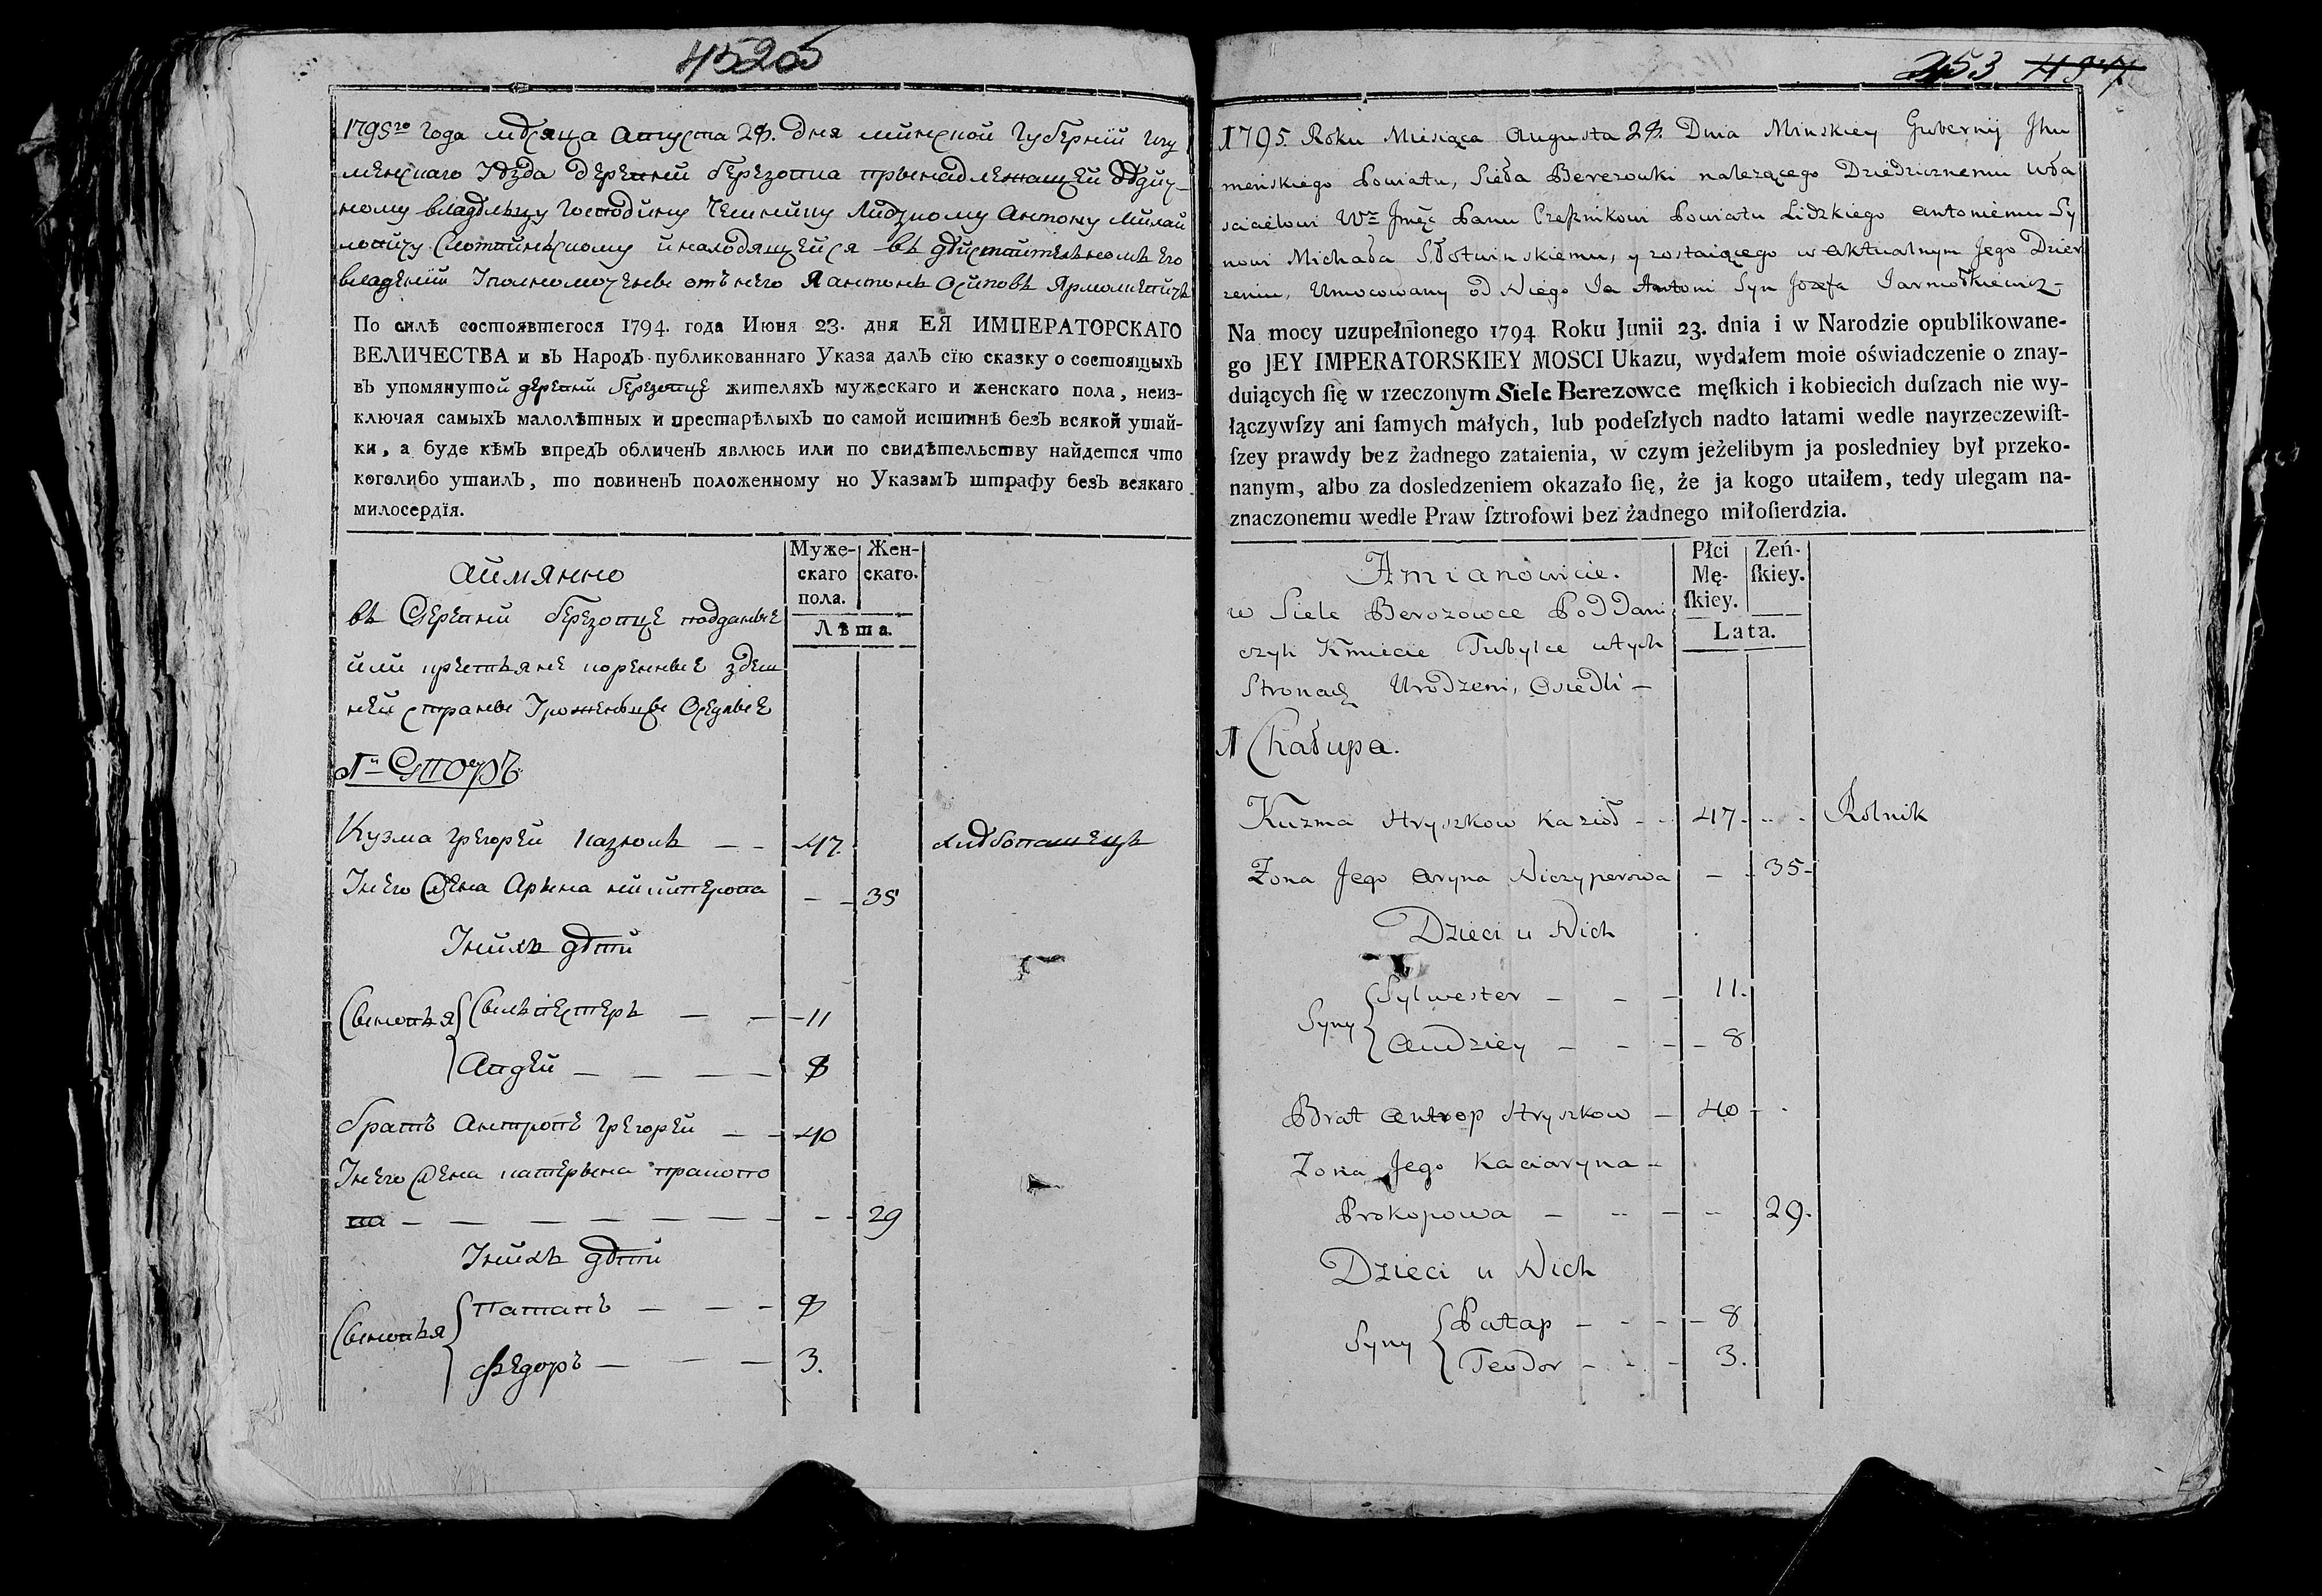 452об
1795го года мѣсяца Августа 28. дня минской Губернїи Игу
менскаго Уѣзда деревни Березовка принадлежащей
ному владѣльцу Господину Чешнику Лидзкому Антону Михай
ловичу Слотвинскому и находящейся въ дѣйствительномъ его
владѣнїи Уполномоченые отъ него Я антонъ Осиповъ Ярмолкевичъ
По силѣ состоявшегося 1794. года Июня 23. дня ЕЯ ИМПЕРАТОРСКАГО
ВЕЛИЧЕСТВА и въ Народъ публикованнаго Указа далъ сїю сказку о состоящыхъ
въ упомянутой деревни березовце жителяхъ мужескаго и женскаго пола, неиз-
ключая самыхъ малолѣтныхъ и престарѣлыхъ по самой истиннѣ безъ всякой утай-
ки, а буде кѣмъ впредъ обличенъ явлюсь или по свидѣтельству найдется что
коголибо утаилъ, то повиненъ положенному но Указамъ штрафу безъ всякаго
милосердїя.
Муже- Жен-
скаго скаго.
пола.
Лѣта.
Аймянно
въ Деревни березовце подданые
или крестьяне коренные здеш
ней страны Уроженцы Оседлые
1й Дворъ
Кузма Грегорей Казюлъ — — 47. хлѣбопашецъ
Унего Жена Арына ничиперова — — 35
Унихъ дѣти
Сыновья { Сылвестеръ — — 11
Авдей — — — — 8
братъ Антропъ Грегорей — — 40
Унего Жена катерына прокопо
ва — — — — — — — — 29
Унихъ дѣти
Сыновья { Патапъ — — — 8
Федоръ — — — 3.
253
1795. Roku Miesiąca Augusta 28. Dnia Minskiey Gubernij Jhu
meńskiego Powiatu, Sieła Berezowki należącego Dziedzicznemu Wła
scicielowi Wz Jmęc Panu Czesznikowi Powiatu Lidzkiego Antoniemu Sy
nowi Michała Słotwinskiemu, y zostaiącego w Aktualnym Jego Dzier
zeniu, Umocowany od Niego Ja Antoni Syn Jozefa Jarmołkiewicz -
Na mocy uzupełnionego 1794 Roku Junii 23. dnia i w Narodzie opublikowane-
go JEY IMPERATORSKIEY MOSCI Ukazu, wydałem moie oświadczenie o znay-
duiących ſię w rzeczonym Siele Berezowce męſkich i kobiecich duſzach nie wy-
łączywſzy ani ſamych małych, lub podeſzłych nadto latami wedle nayrzeczewiſt-
ſzey prawdy bez żadnego zataienia, w czym jeżelibym ja posledniey był przeko-
nanym, albo za dosledzeniem okazało ſię, że ja kogo utaiłem, tedy ulegam na-
znaczonemu wedle Praw ſztrofowi bez żadnego miłoſierdzia.
Płci Zeń-
Mę- ſkiey.
ſkiey.
Lata.
Amianowicie.
w Siele Berozowce Poddani
czyli Kmiecie Tubylce wtych
Stronach Urodzeni, Osiedli -
1 Chałupa.
Kuzma Hryszkow Kazioł - - 47. Rolnik
Zona Jego Aryna Niczyperowa — 35-
Dzieci u Nich
Syny { Sylwester — — — 11.
Audziey — — — 8
Brat Antrop Hryszkow — 40
Zona Jego Kaciaryna -
Prokopowa — — — 29.
Dzieci u Nich
Syny { Patap — — — 8
Teodor — — — 3.